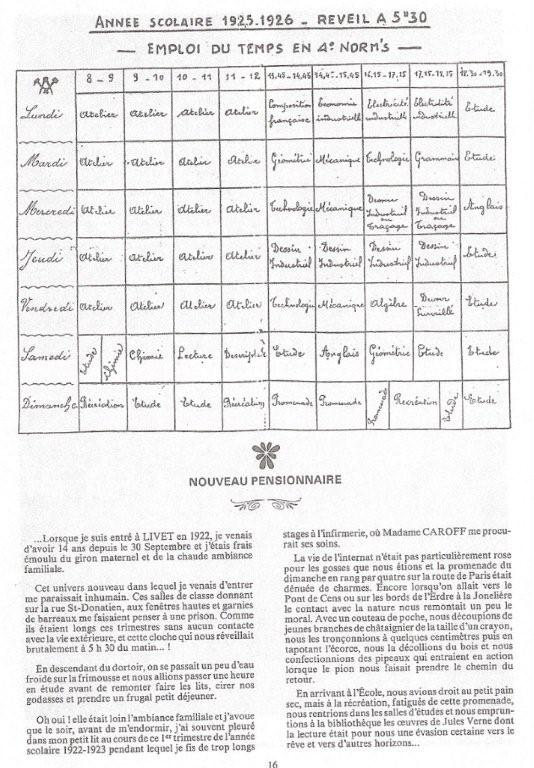 ANNEE SCOLAIRE 1925.1926 _ REVEIL A 5H30
— EMPLOI DU TEMPS EN 4e NORM'S —
8 – 9 9 – 10 10 – 11 11 – 12 13,45-14,45 14,45-15,45 16,15-17,15 17,15-18,15 18.30-19.30
Lundi Atelier Atelier Atelier Atelier Composition française Economie industrielle Electricité industrielle Electricité industrielle Etude
Mardi Atelier Atelier Atelier Atelier Géométrie Mécanique Technologie Grammaire Etude
Mercredi Atelier Atelier Atelier Atelier Technologie Mécanique Dessin Industriel ou Traçage Dessin Industriel ou Traçage Anglais
Jeudi Atelier Atelier Atelier Atelier Dessin Industriel Dessin Industriel Dessin Industriel Dessin Industriel Etude
Vendredi Atelier Atelier Atelier Atelier Technologie Mécanique Algèbre Devoir Surveillé Etude
Samedi Etude Chimie Chimie Lecture Descriptive Etude Anglais Géométrie Etude Etude
Dimanche Récréation Etude Etude Récréation Promenade Promenade Promenade Récréation Etude Etude
NOUVEAU PENSIONNAIRE
...Lorsque je suis entré à LIVET en 1922, je venais
d'avoir 14 ans depuis le 30 Septembre et j'étais frais
émoulu du giron maternel et de la chaude ambiance
familiale.
Cet univers nouveau dans lequel je venais d'entrer
me paraissait inhumain. Ces salles de classe donnant
sur la rue St-Donatien, aux fenêtres hautes et garnies
de barreaux me faisaient penser à une prison. Comme
ils étaient longs ces trimestres sans aucun contact
avec la vie extérieure, et cette cloche qui nous réveillait
brutalement à 5 h 30 du matin... !
En descendant du dortoir, on se passait un peu d'eau
froide sur la frimousse et nous allions passer une heure
en étude avant de remonter faire les lits, cirer nos
godasses et prendre un frugal petit déjeuner.
Oh oui ! elle était loin l'ambiance familiale et j'avoue
que le soir, avant de m'endormir, j'ai souvent pleuré
dans mon petit lit au cours de ce 1er trimestre de l'année
scolaire 1922-1923 pendant lequel je fis de trop longs
stages à l'infirmerie, où Madame CAROFF me procu-
rait ses soins.
La vie de l'internat n'était pas particulièrement rose
pour les gosses que nous étions et la promenade du
dimanche en rang par quatre sur la route de Paris était
dénuée de charmes. Encore lorsqu'on allait vers le
Pont de Cens ou sur les bords de l'Erdre à la Jonelière
le contact avec la nature nous remontait un peu le
moral. Avec un couteau de poche, nous découpions de
jeunes branches de châtaignier de la taille d'un crayon,
nous les tronçonnions à quelques centimètres puis en
tapotant l'écorce, nous la décollions du bois et nous
confectionnions des pipeaux qui entraient en action
lorsque le pion nous faisait prendre le chemin du
retour.
En arrivant à l'École, nous avions droit au petit pain
sec, mais à la récréation, fatigués de cette promenade,
nous rentrions dans les salles d'études et nous emprun-
tions à la bibliothèque les œuvres de Jules Verne dont
la lecture était pour nous une évasion certaine vers le
rêve et vers d'autres horizons...
16